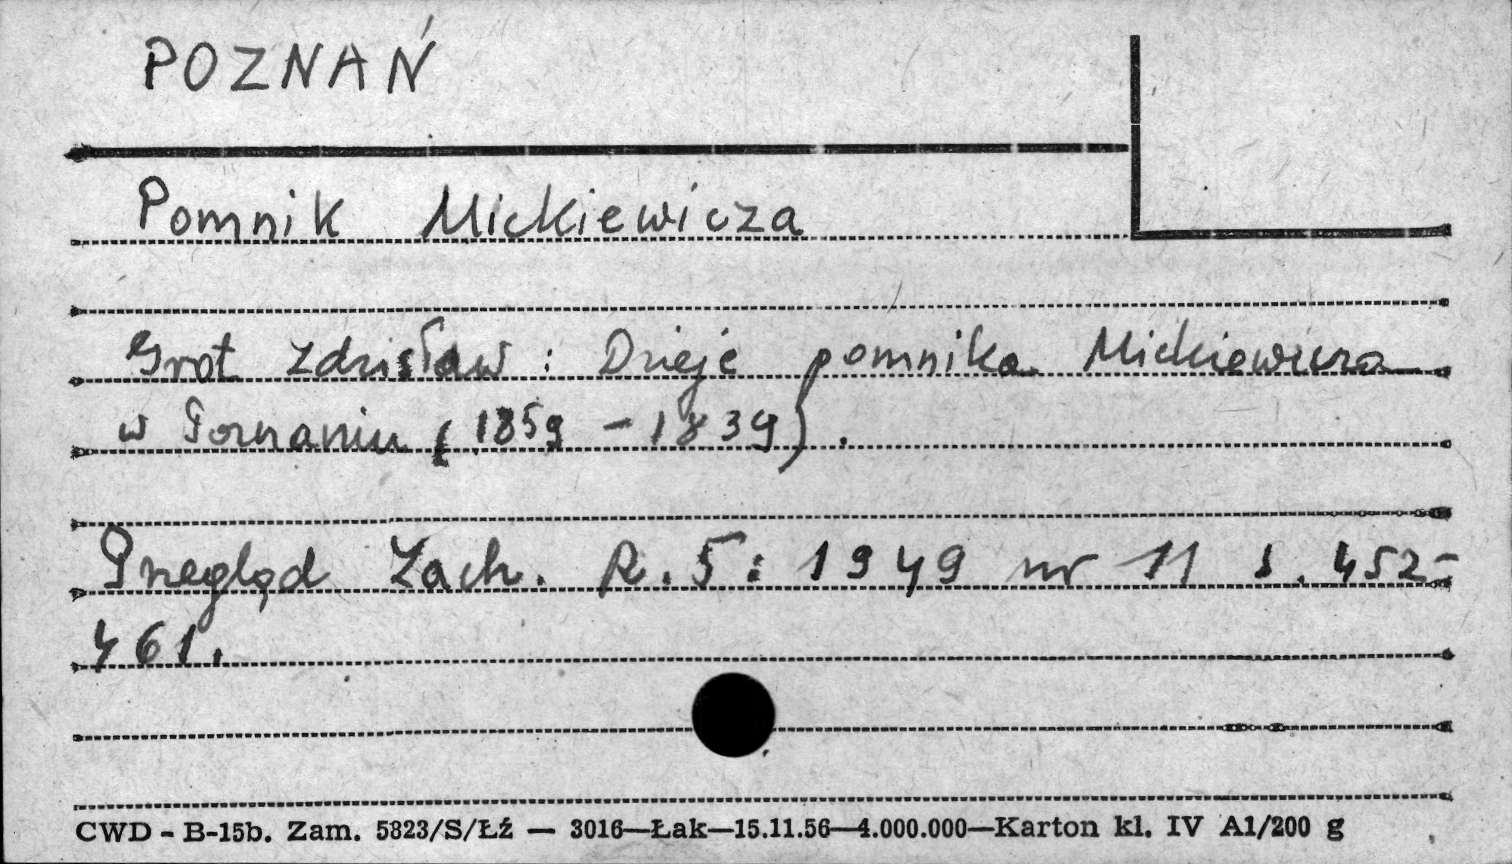 POZNAŃ
Pomnik Mickiewicza
Grot Zdzisław : Dzieje pomnika Mickiewicza
w Poznaniu (1859 - 1839).
Przegląd Zach. R. 5: 1949 nr 11 s. 452-
461.
CWD - B-15b. Zam. 5823/S/Łź — 3016—Łak—15.11.56—4.000.000—Karton kl. IV A1/200 g